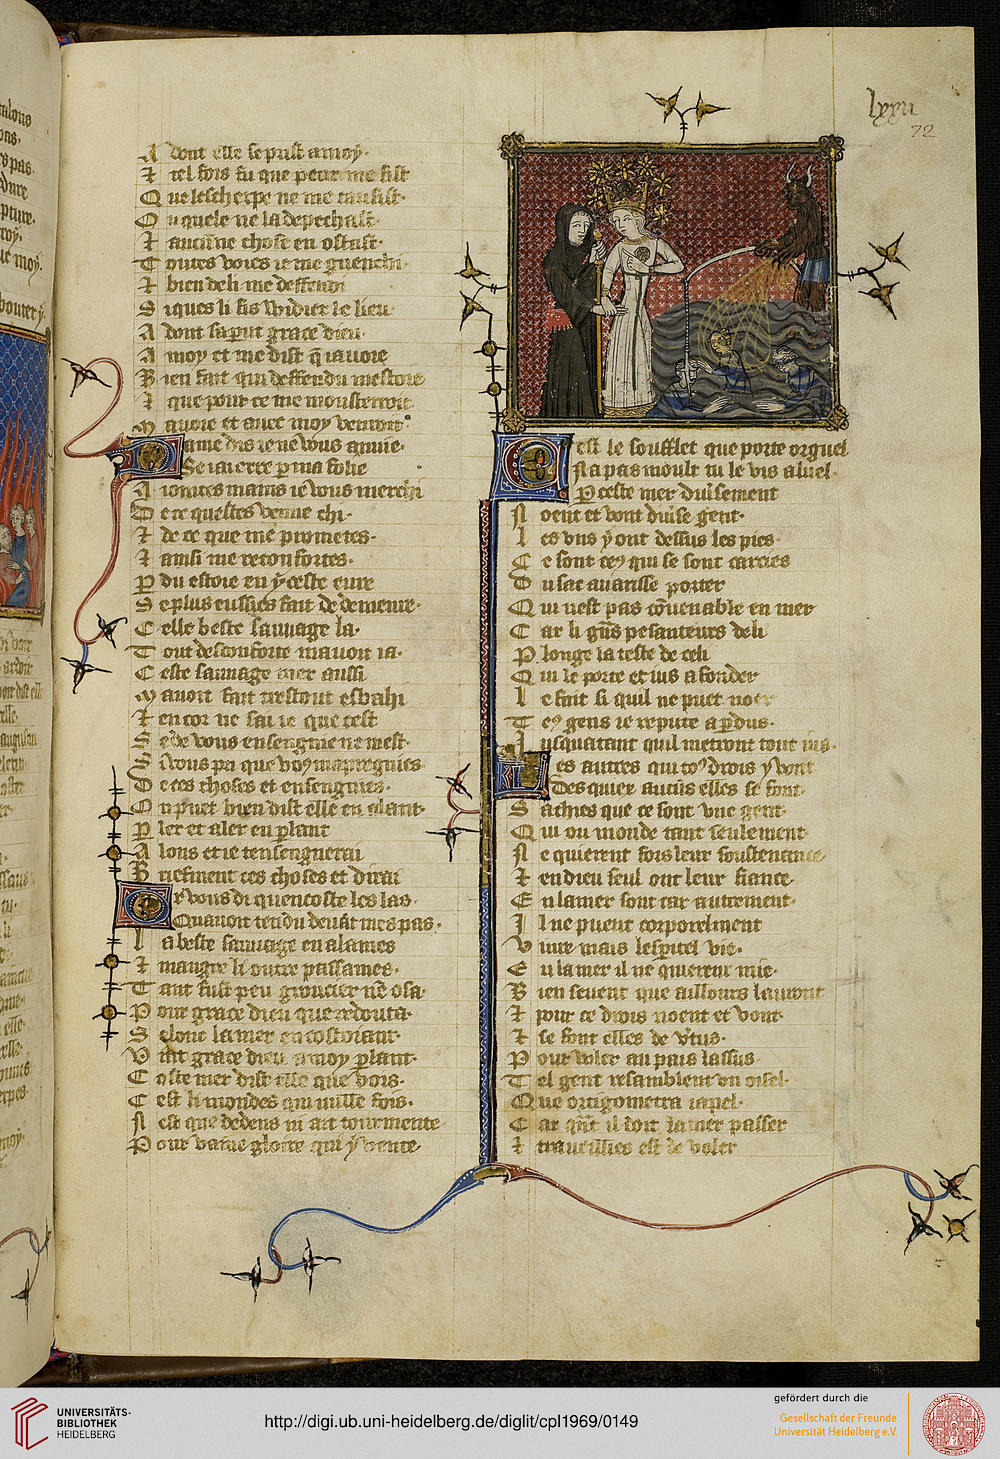 lxxii
72
A dont elle se prist a moy.
Et tel fois fu que peur me fist
Que lescherpe ne me tausist.
Ou quele ne la depechast.
Et aucune chose en ostast.
Toutes voies ie me guenchi.
Et bien deli me deffendi
Siques li fis widier le lieu
A dont saprut grace dieu.
A moy et me dist q iauoie
Bien fait qui deffendu mestoie
Et que pour ce me monsterroit
Mauoie et auec moy venroit
Dame dis ie ne vous anuie.
Se iai erre p ma folie
A iointes mains ie vous merchi
De ce questes venue chi.
Et de ce que me prometes.
Et ainsi me reconfortes.
P du estoie en yceste eure
Se plus eussies fait de demeure.
Celle beste sauuage la.
Tout desconforte mauoit ia.
Ceste sauuage mer aussi
Mauoit fait trestout esbahi
Et encor ne sai ie que cest
Se de vous ensengnie ne mest.
Si vous pri que vo mapregnies
De ces choses et ensengnies.
On puet bien dist elle en alant.
Pler et aler en plant
Alons et ie tensengnerai
Briefment ces choses et dirai
Or vous di quencoste les las.
Quauoit tendu deuat mes pas.
La beste sauuage en alames
Et maugre li outre passames.
Tant fust peu groucier ne osa.
Pour grace dieu que redouta.
Selonc la mer en costoiant.
Vait grace dieu a moy plant.
Ceste mer dist elle que vois.
Cest li mondes qui nulle fois.
Nest que dedens ni ait tourmente
Pour vaine gloire qui y vente.
Cest le soufflet que porte orguel
Na pas moult tu le vis a luel.
P ceste mer diuisement
Noent et vont diuise gent.
Les vns y ont dessus les pies.
Ce sont cey qui se sont carcies
Du sac auarisse porter
Qui nest pas couenable en mer
Car li gns pesanteurs deli
Plonge la teste de celi
Qui le porte et ius a fonder
Le fait si quil ne puet noer
Tey gens ie repute a pdus.
Iusquatant quil metront tout ius.
Les autres qui to drois y vont
Des quiex aucus elles se font.
Saches que ce sont vne gent.
Qui ou monde tant seulement
Ne quierent fors leur soustenance.
Et en dieu seul ont leur fiance.
En la mer sont car autrement.
Il ne puent corporelment
Viure mais lespitel vie.
En la mer il ne quierent mie.
Bien seuent que aillours lauront
Et pour ce drois noent et vont.
Et se font elles de vtus.
Pour voler au pais lassus
Tel gent resamblent vn oisel.
Que ortigometra iapel.
Car qnt il doit la mer passer
Et traueillies est de voler
UNIVERSITÄTS-
BIBLIOTHEK
HEIDELBERG
http://digi.ub.uni-heidelberg.de/diglit/cpl1969/0149
gefördert durch die
Gesellschaft der Freunde
Universität Heidelberg e.V.